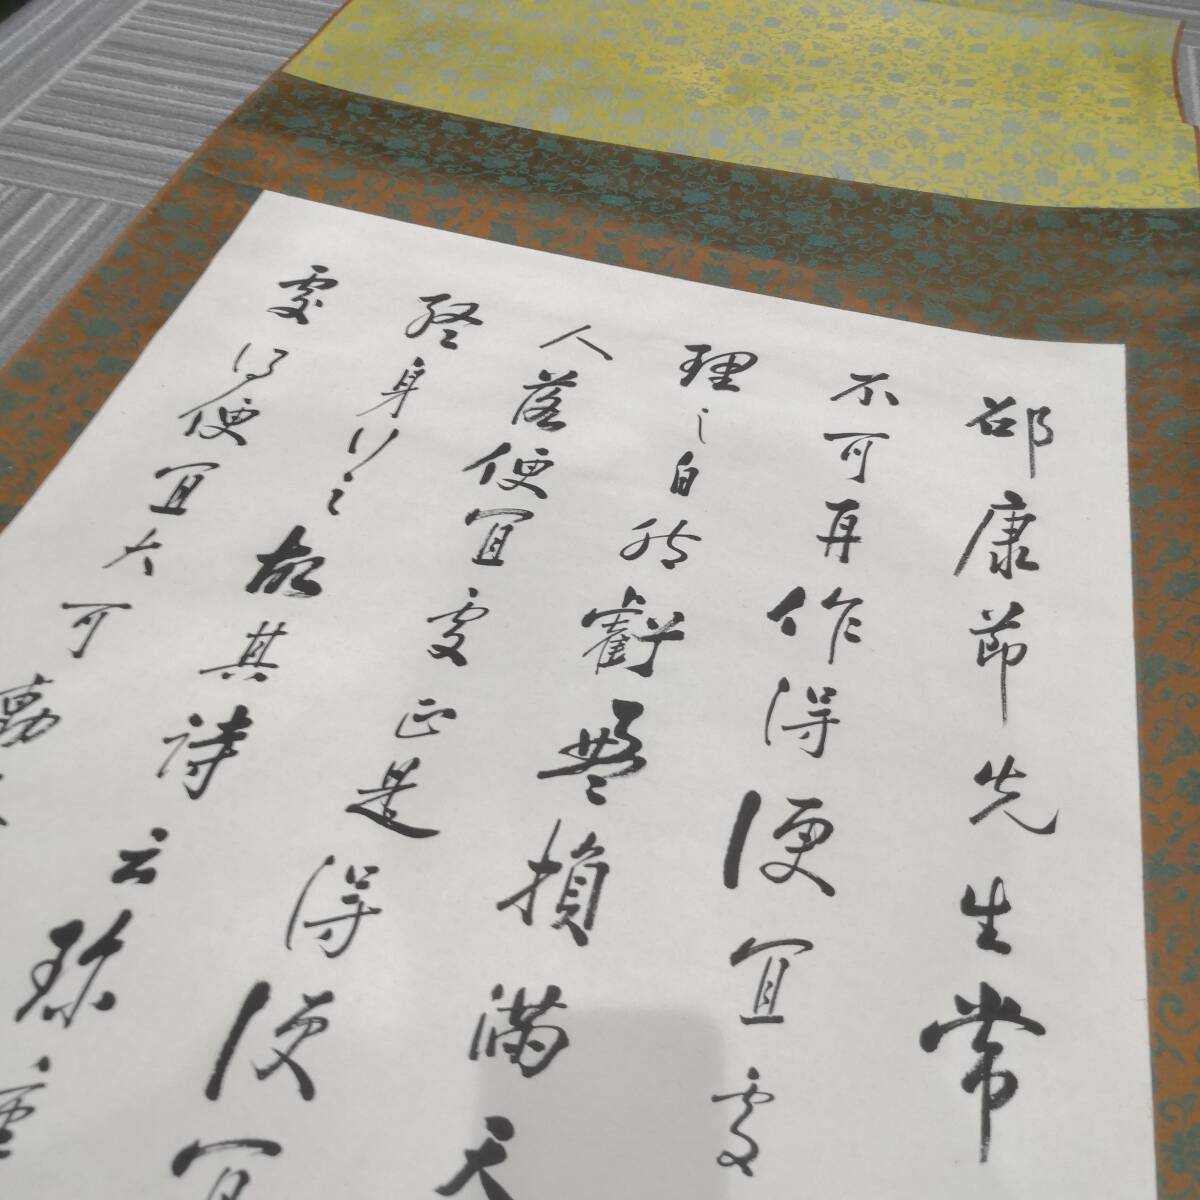 邵康節先生常
不可再作得便宜處
理之自然虧盈損滿天
人落便宜處正是得便宜
終身行之故其詩云珍重
處得便宜大可